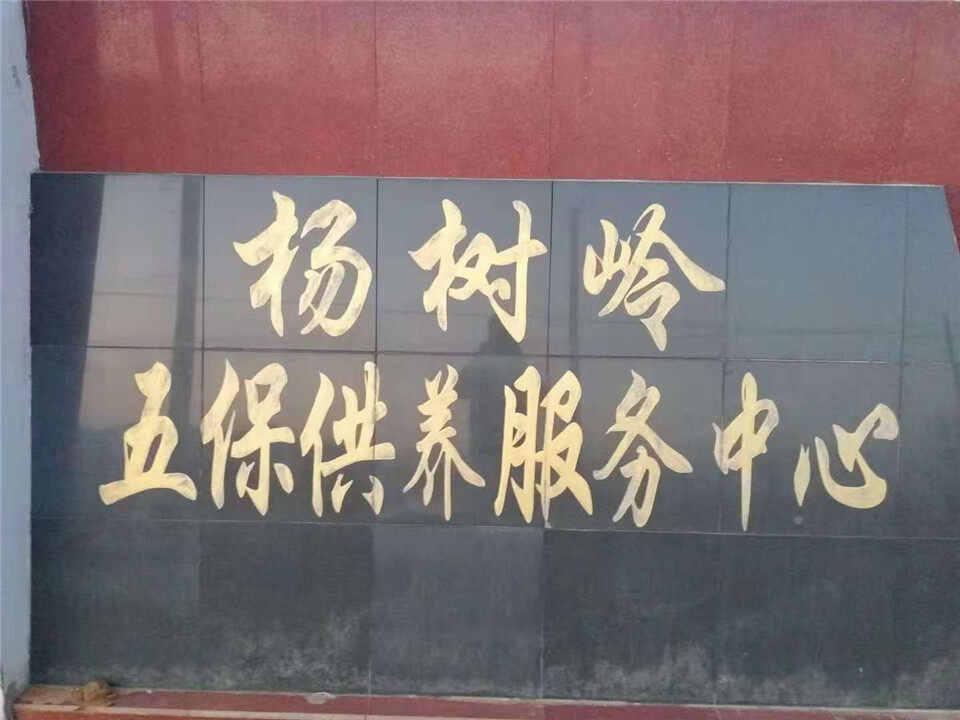 杨树岭
五保供养服务中心